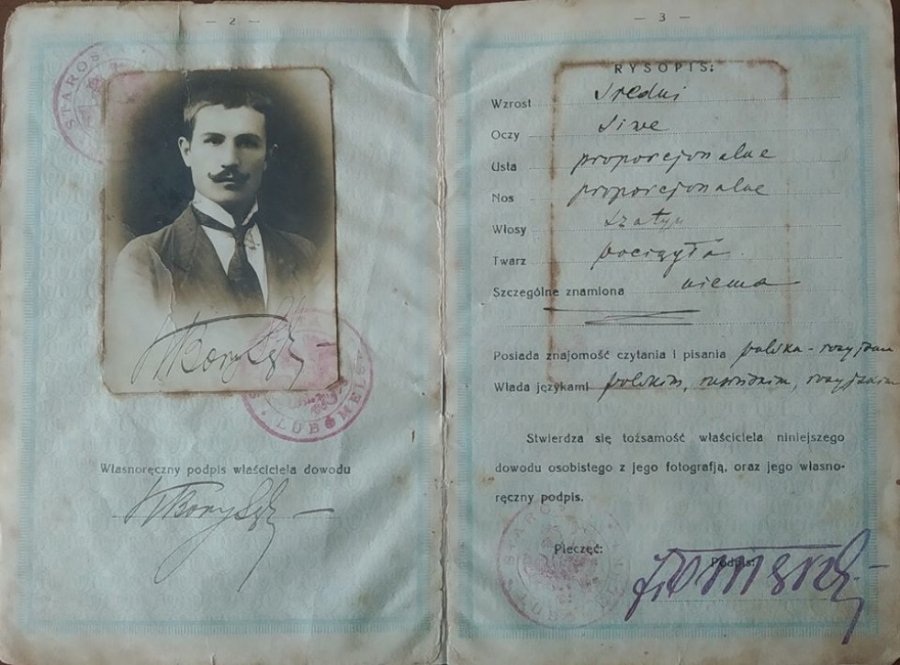 — 2 —
STAROS
LUBOMELS
Własnoręczny podpis właściciela dowodu
— 3 —
RYSOPIS:
Wzrost średni
Oczy siwe
Usta proporcjonalne
Nos proporcjonalne
Włosy szatyn
Twarz pociągła
Szczególne znamiona niema
Posiada znajomość czytania i pisania polska-
Włada językami polskim,
Stwierdza się tożsamość właściciela niniejszego
dowodu osobistego z jego fotografją, oraz jego własno-
ręczny podpis.
Pieczęć:
Podpis: